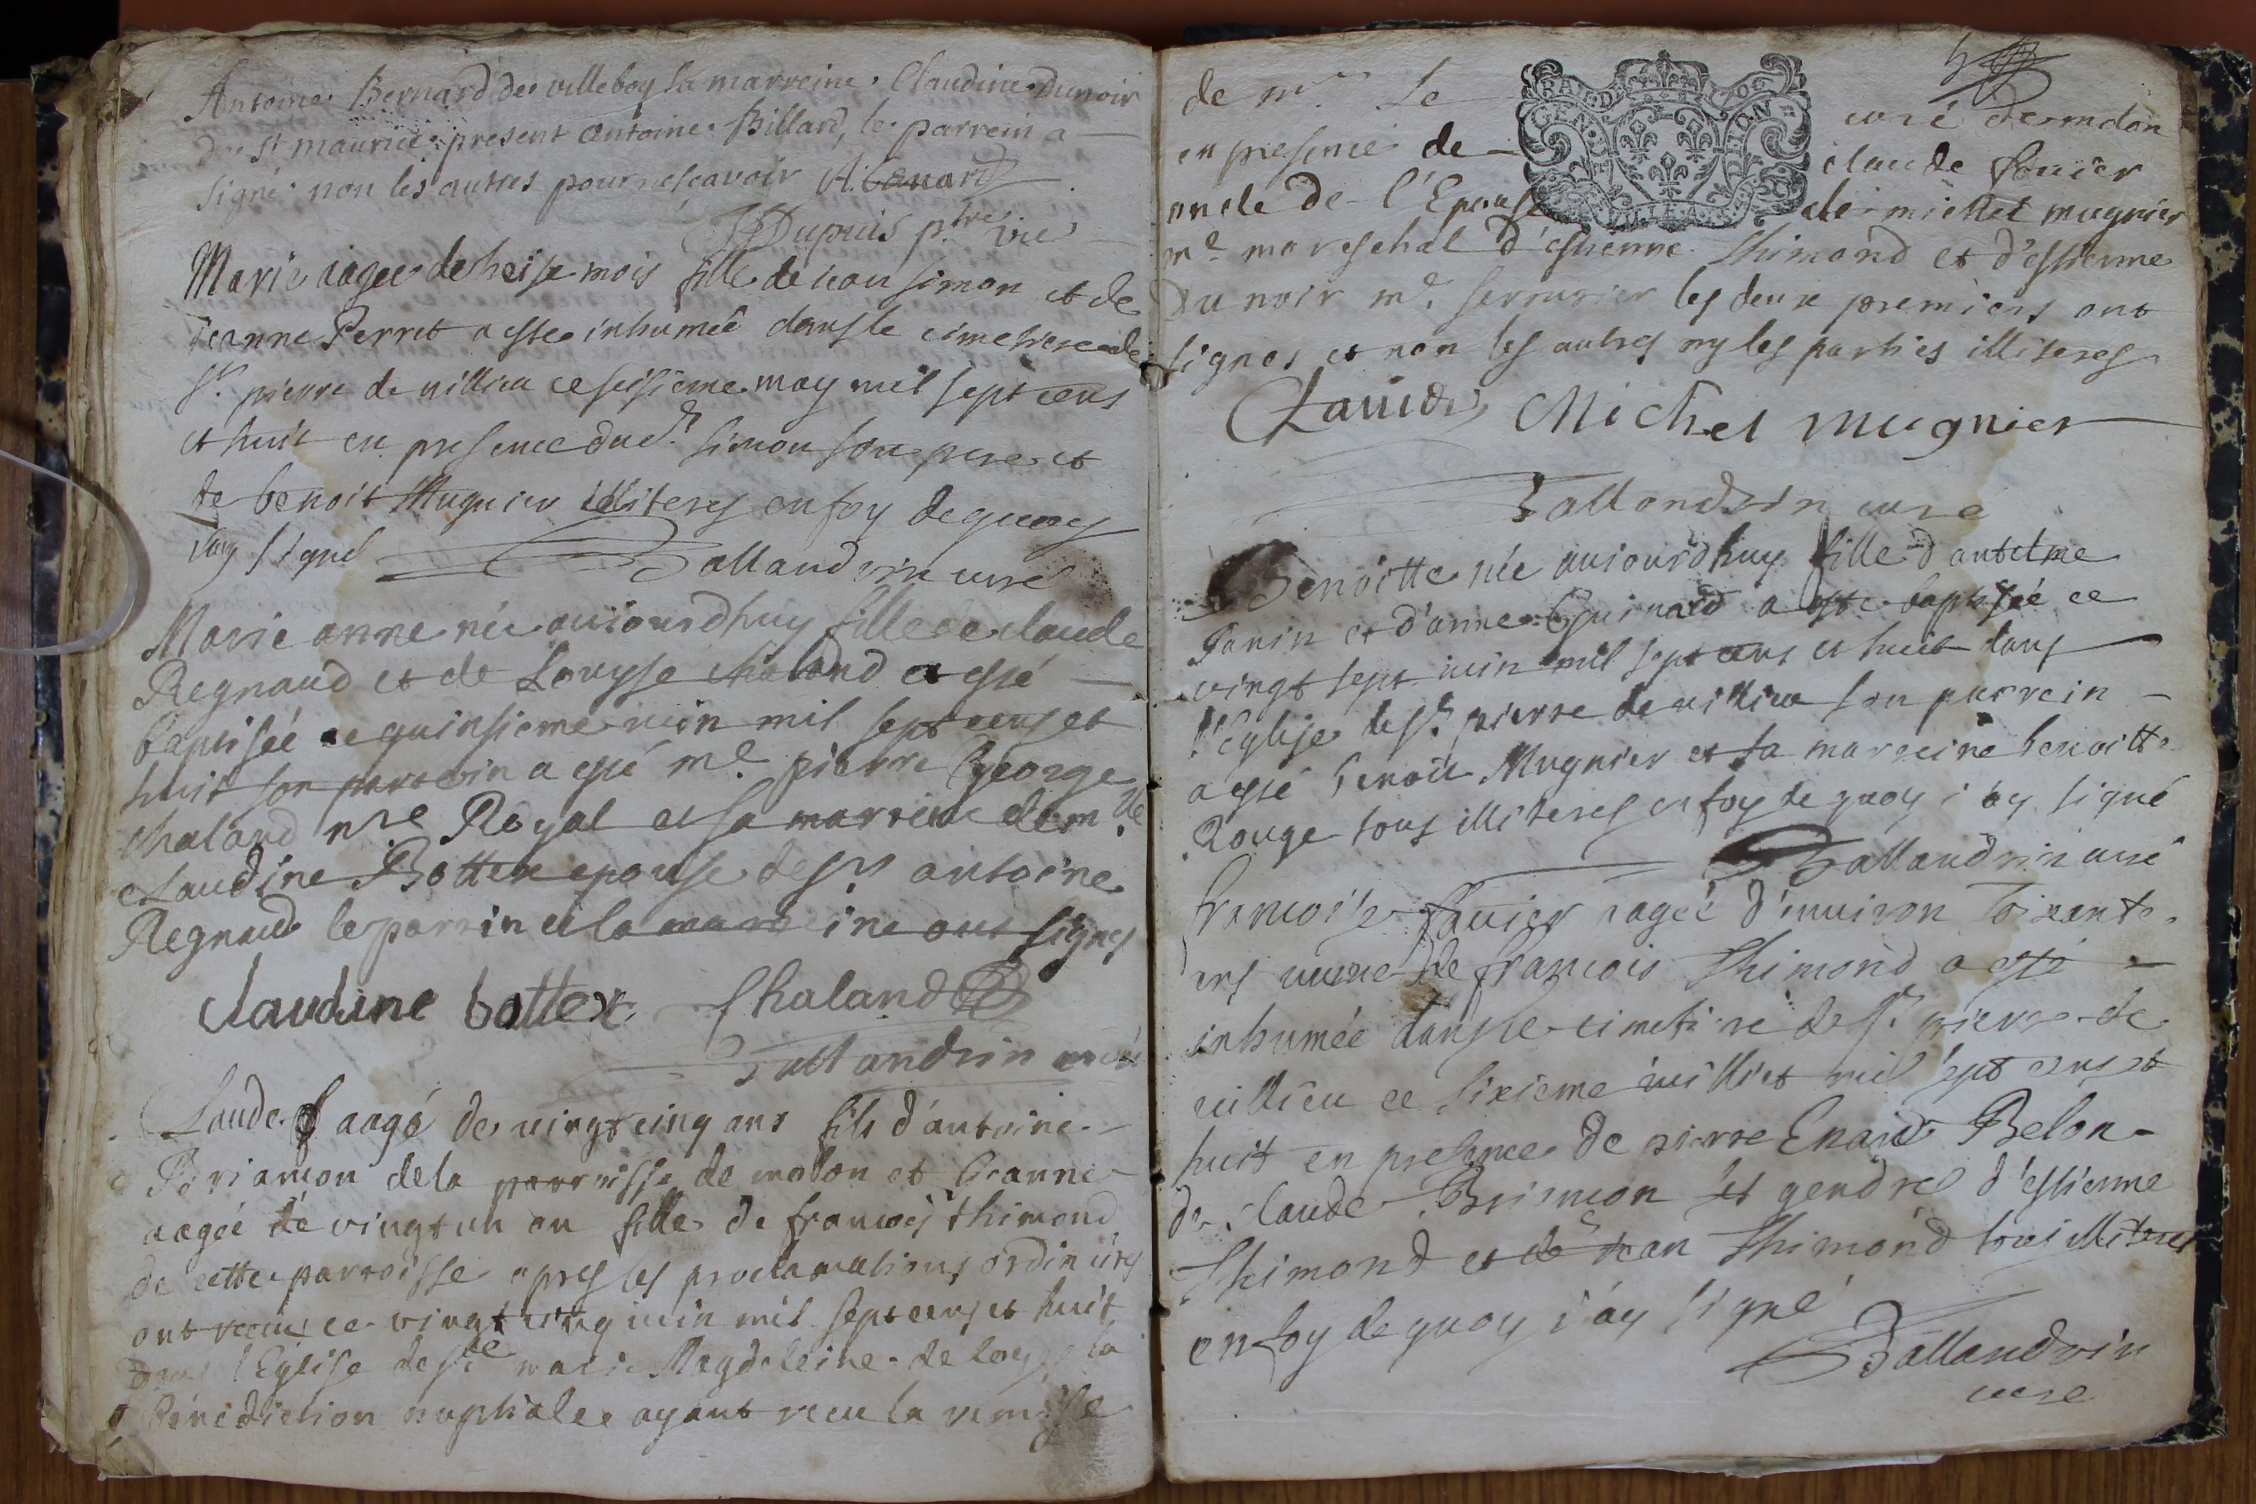 Antoine Bernard de villeboy sa marreine Claudine Dunoir
de St maurice present antoine Billard, le parrein a
signé non les autres pour ne scavoir
JDupuis ptre vic
Marie aagee de treise mois fille de jean simon et de
jeanne Perret a este inhumeé dans le cimetiere de
St pierre de villieu ce seisieme may mil sept cens
et huit en presence dud. simon son pere et
de benoit Mugnier illiteres en foy de quoy
j'ay signé Ballandrin curé
Marie anne née aujourdhuy fille de claude
Regnaud et de Louyse chaland a esté
baptisée ce quinsieme iuin mil sept cens et
huit son parrein a esté me. pierre George
chaland nre Royal et sa marreine dem.lle
claudine Bottex epouse de sr antoine
Regnaud le parrin et la marreine ont signes
claudine bottex Chaland
Ballandrin curé
Claude aagé de vingt cinq ans fils d'antoine
Briancon de la parroisse de molon et Jeanne
aagée de vingt un an fille de francois thimond
de cette parroisse apres les proclamations ordinaires
ont receu ce vingt cinq iuin mil sept cens et huit
dans l'Eglise de Ste marie Magdeleine de loyes la
Bénédiction nuptiale ayant receu la remise
de mr. Le curé de molon
en presence de claude favier
oncle de l'Epouse de michel mugnier
me mareschal d'estienne thimond et d'estienne
Du noir me. serrurier les deux premiers ont
signes et non les autres ny les parties illiteres
Michel mugnier
Ballandrin cure
Benoitte née aujourdhuy fille d'antelme
Janin et d'anne Guinard a este baptisée ce
vingt sept iuin mil sept cens et huit dans
l'Eglise de St. pierre de villieu son parrein
a esté benoit Mugnier et sa marreine benoitte
Rouge tous illiteres en foy de quoy i'ay signé
Ballandrin curé
francoise favier aagée d'environ soixante
ans veuve de francois thimond a esté
inhumée dans le cimetire de St pierre de
villieu ce sixieme iuilliet mil sept cens et
huit en presence de pierre Enard Belon
de claude Briancon gendre d'estienne
thimond et de jean thimond tous illiteres
en foy de quoy i'ay signé
Ballandrin
cure